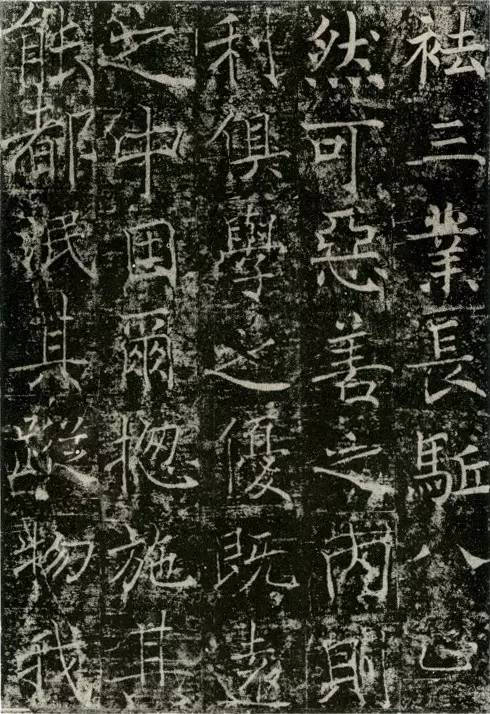 祛三業長駈八正
然可惡善之內則
利俱學之優既遠
之中因爾揔施其
能都泯其蹤物我